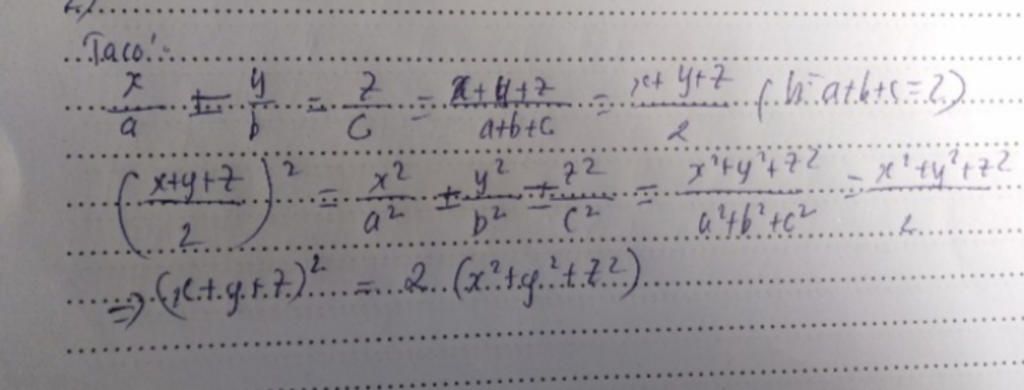 Ta có:
x/a = y/b = z/c = x+y+z/a+b+c = x+y+z/2 (Vì a+b+c=2)
(x+y+z/2)² = x²/a² = y²/b² = z²/c² = x²+y²+z²/a²+b²+c² = x²+y²+z²/2
=> (x+y+z)² = 2 (x²+y²+z²)